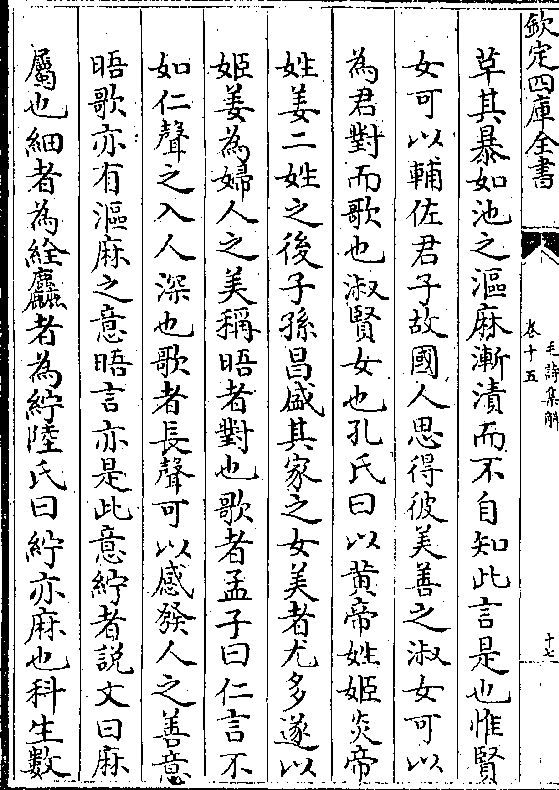 欽定四庫全書
毛詩集解
卷十五
十七
草其暴如池之漚麻漸漬而不自知此言是也惟賢
女可以輔佐君子故國人思得彼美善之淑女可以
為君對而歌也淑賢女也孔氏曰以黄帝姓姬炎帝
姓姜二姓之後子孫昌盛其家之女美者尤多遂以
姬姜為婦人之美稱晤者對也歌者孟子曰仁言不
如仁聲之入人深也歌者長聲可以感發人之善意
晤歌亦有漚麻之意晤言亦是此意紵者説文曰麻
屬也細者為絟麤者為紵陸氏曰紵亦麻也科生數